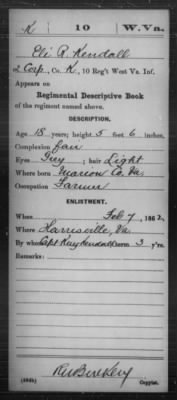 K 10 W.Va.
Eli R. Kendall
2 Corp, Co. K, 10 Reg't West Va. Inf.
Appears on
Regimental Descriptive Book
of the regiment named above.
DESCRIPTION.
Age 18 years; height 5 feet 6 inches.
Complexion fair
Eyes Grey; hair Light
Where born Marion Co. Va.
Occupation Farmer
ENLISTMENT.
When Feb 7, 1862.
Where Harrisville, Va.
By whom Capt Kendall; term 3 y'rs.
Remarks:
Copyist.